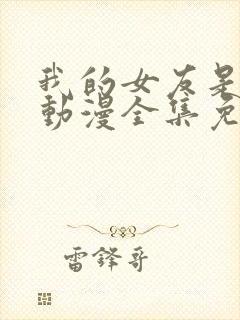 我的女友是
動漫全集免
雷鋒哥